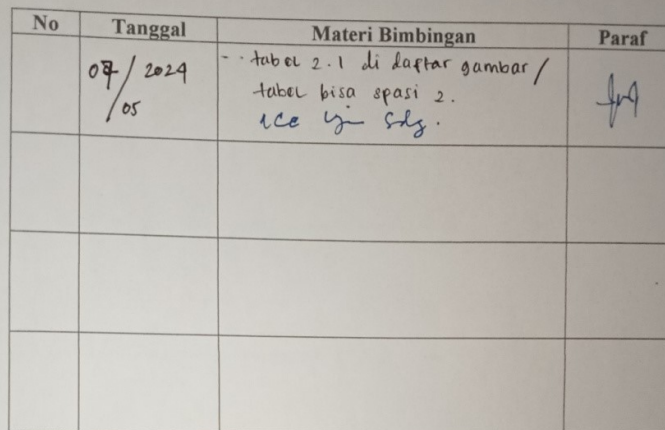 No Tanggal Materi Bimbingan Paraf
07/05 2024
- tabel 2.1 di daftar gambar/
tabel bisa spasi 2.